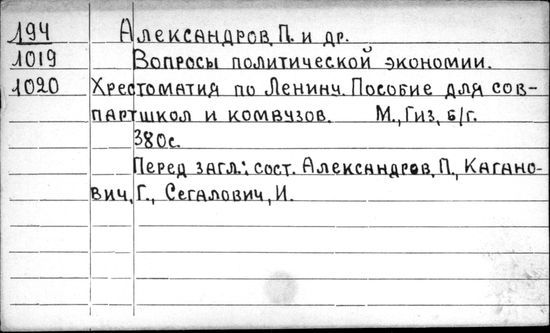 194 Александров, П. и др.
1019 Вопросы политической экономии.
1020 Хрестоматия по Ленину. Пособие для сов-
партшкол и комвузов. М., Гиз, б/г.
380с.
Перед загл.: сост. Александров, П., Кагано-
вич, Г., Сегалович, И.